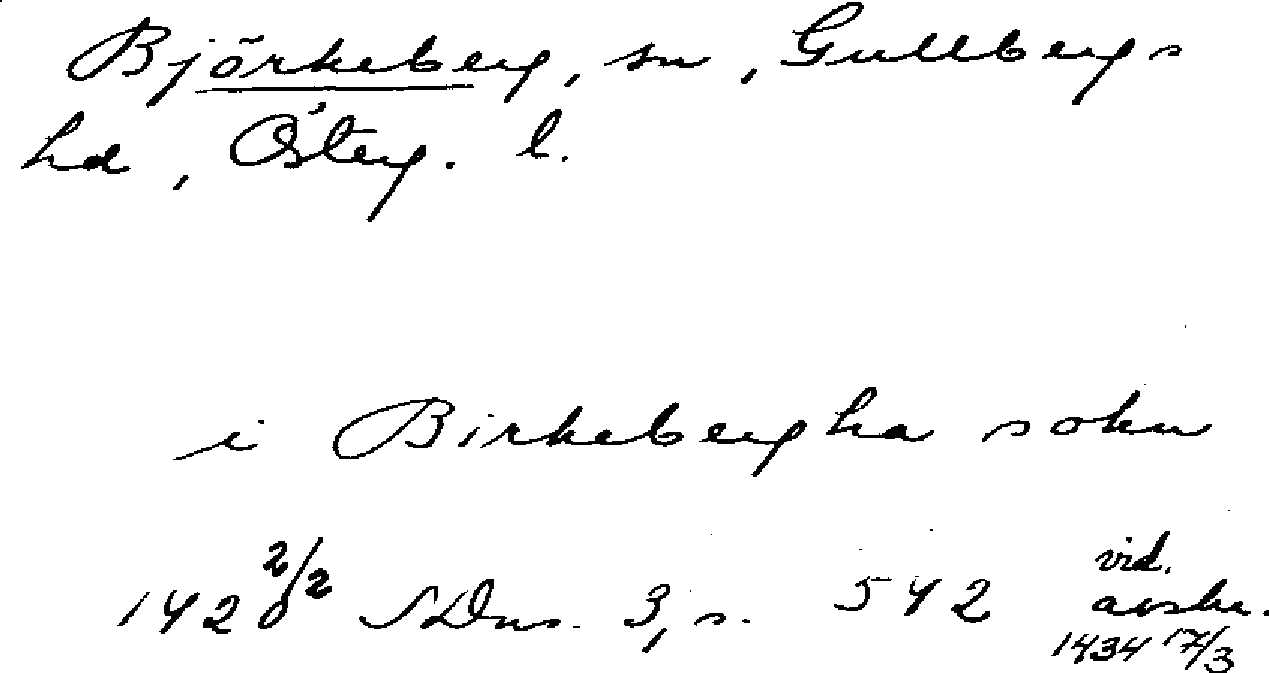 Björkeberg, sn, Gullbergs
hd, Österg. l.
i Birkebergha sokn
1420 2/2 SDns. 3, s. 542 vid. avskr. 1434 17/3